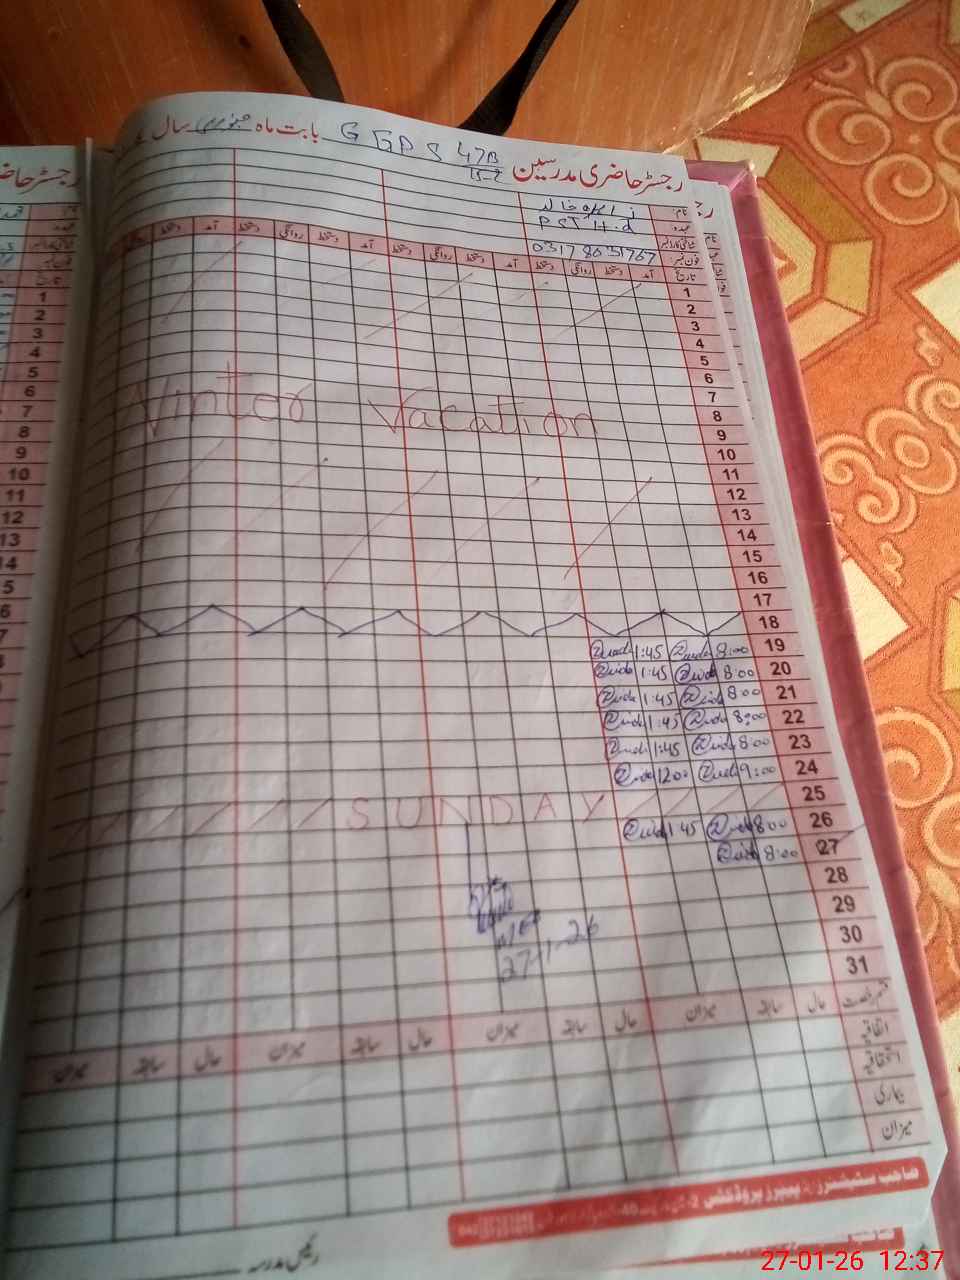 رجسٹر حاضری مدرسین G GPS 47B/15-L بابت ماہ جنوری سال
نام
عہدہ PST H.d
شناختی کارڈ نمبر
فون نمبر 03178031767
تاریخ آمد دستخط روانگی دستخط آمد دستخط روانگی دستخط آمد دستخط روانگی دستخط آمد دستخط
1
2
3
4
5
6
7
Winter Vacation
8
9
10
11
12
13
14
15
16
17
18
19 8:00 1:45
20 8:00 1:45
21 8:00 1:45
22 8:00 1:45
23 8:00 1:45
24 9:00 12:00
25 SUNDAY
26 8:00 1:45
27 8:00
28
29
30
27-1-26
31
قسم رخصت حال سابقہ میزان حال سابقہ میزان حال سابقہ میزان حال سابقہ میزان
اتفاقیہ
استحقاقیہ
بیماری
میزان
رئیس مدرسہ
27-01-26 12:37